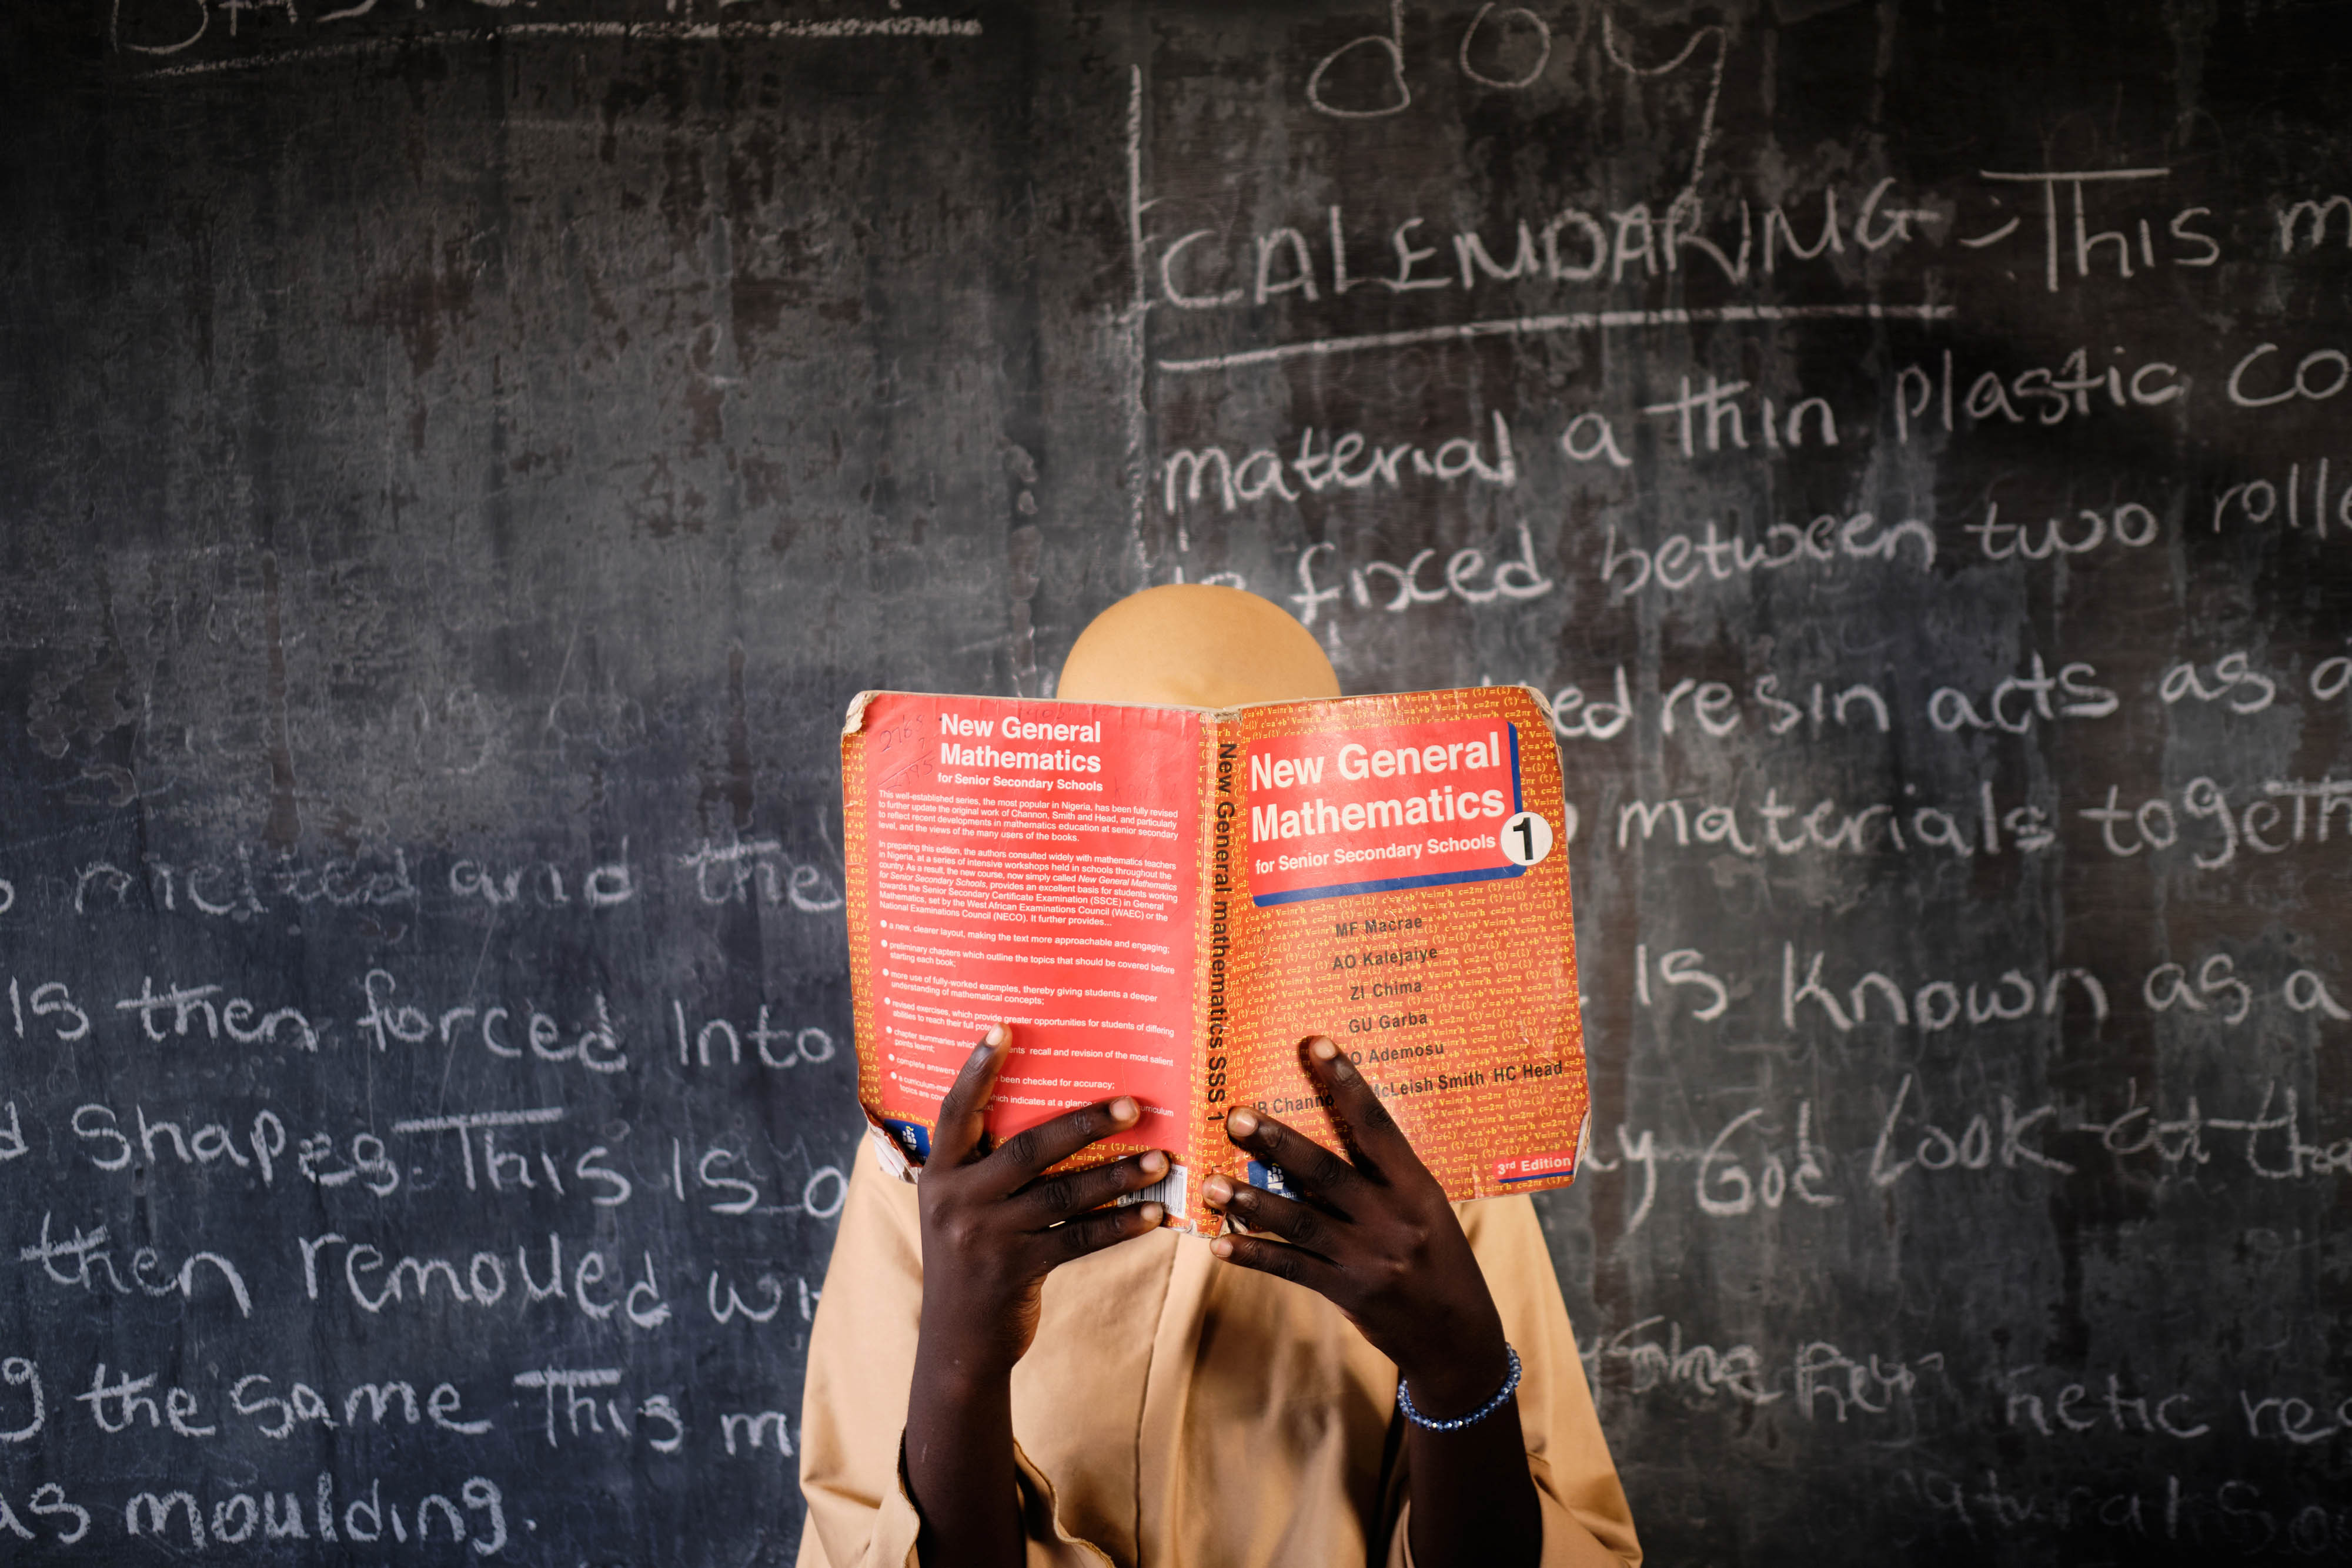 doy
CALENDARING :- This m
material a thin plastic co
fixed between two rolle
ed resin acts as a
materials togeth
is known as a
y God look at tha
netic re
melted and the
is then forced into
d shapes This is a
then removed wi
g the same This m
as moulding.
New General
Mathematics
for Senior Secondary Schools
This well-established series, the most popular in Nigeria, has been fully revised
to further update the original work of Channon, Smith and Head, and particularly
to reflect recent developments in mathematics education at senior secondary
level, and the views of the many users of the books.
In preparing this edition, the authors consulted widely with mathematics teachers
in Nigeria, at a series of intensive workshops held in schools throughout the
country. As a result, the new course, now simply called New General Mathematics
for Senior Secondary Schools, provides an excellent basis for students working
towards the Senior Secondary Certificate Examination (SSCE) in General
Mathematics, set by the West African Examinations Council (WAEC) or the
National Examinations Council (NECO). It further provides...
a new, clearer layout, making the text more approachable and engaging;
preliminary chapters which outline the topics that should be covered before
starting each book;
more use of fully-worked examples, thereby giving students a deeper
understanding of mathematical concepts;
revised exercises, which provide greater opportunities for students of differing
abilities to reach their full
chapter summaries recall and revision of the most salient
points learnt;
complete answers been checked for accuracy;
which indicates at a glance curriculum
topics are
New General mathematics SSS 1
New General
Mathematics
for Senior Secondary Schools 1
MF Macrae
AO Kalejaiye
ZI Chima
GU Garba
O Ademosu
JB Channo McLeish Smith HC Head
3rd Edition